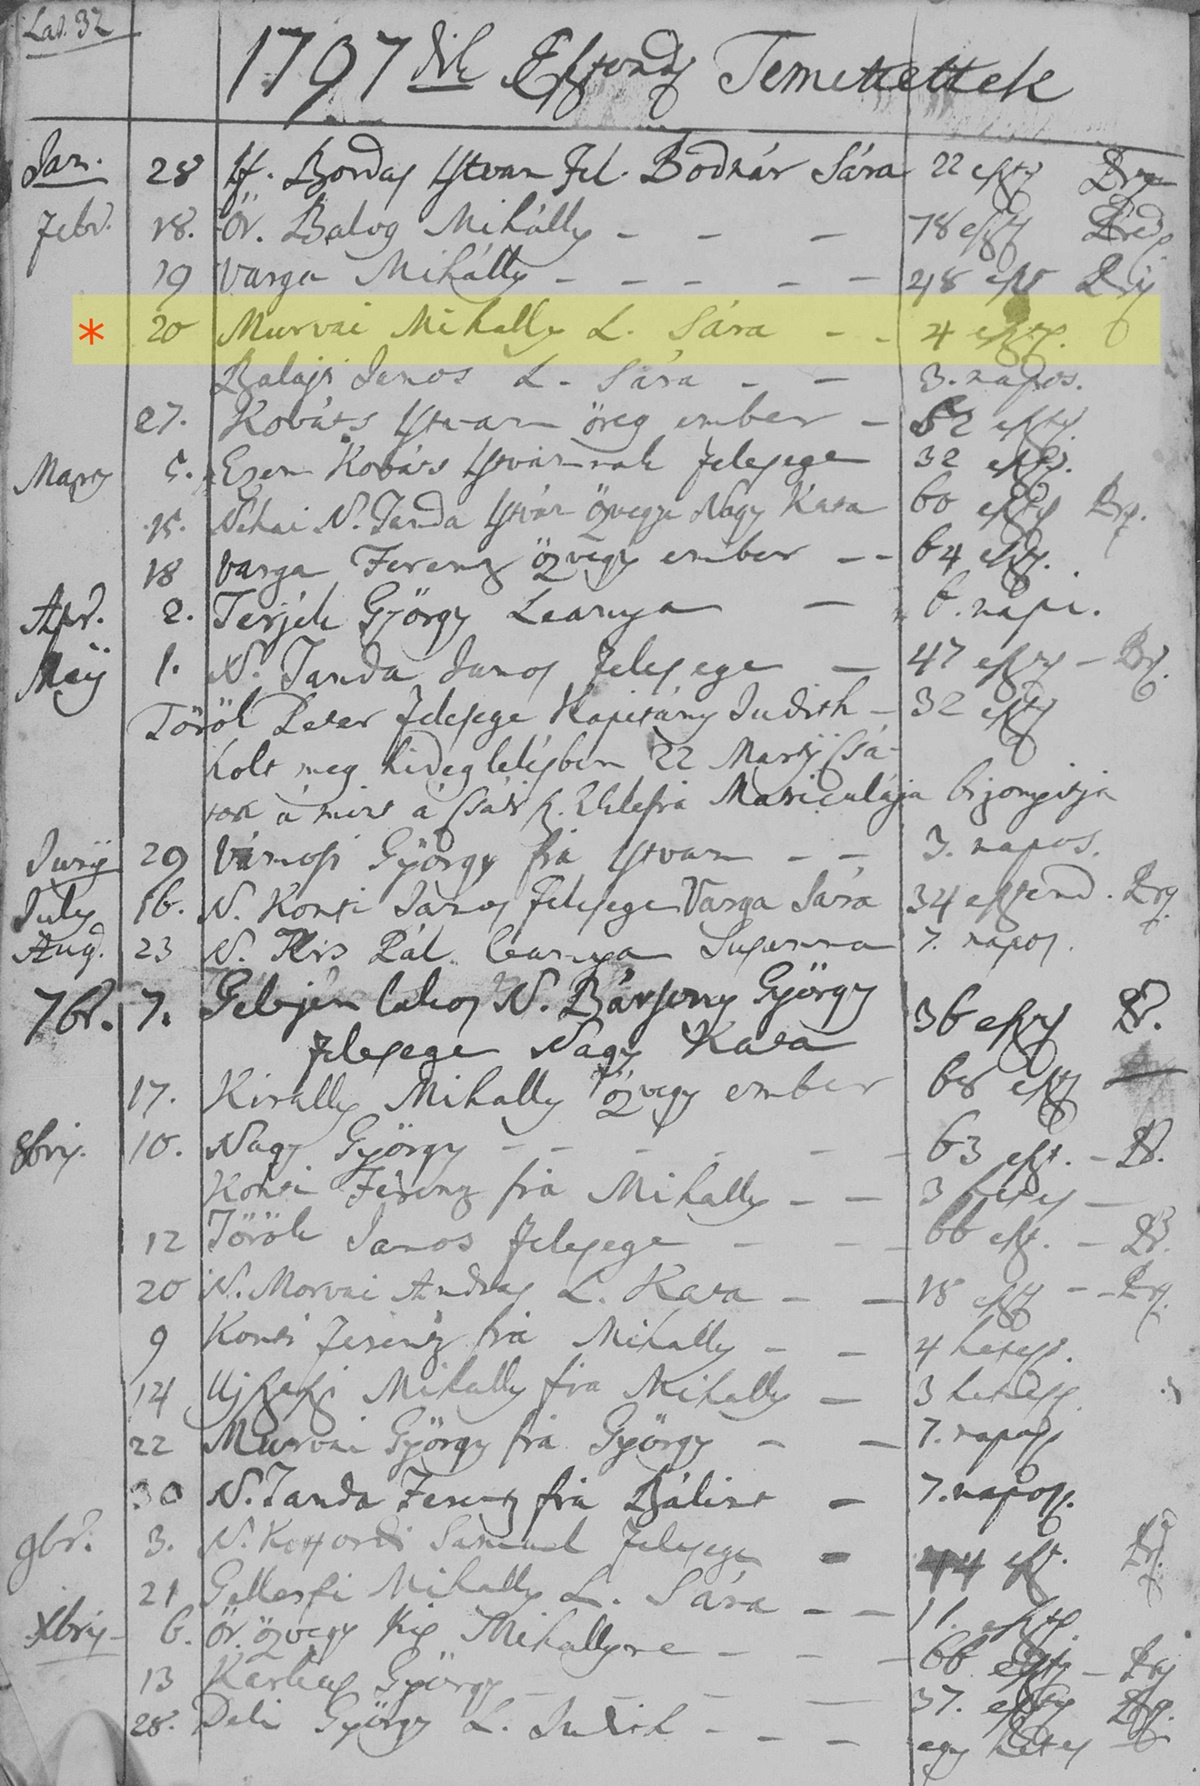 Lat. 32
1797dik Esztend. Temettettek
Jan. 28 If. Bordas Istvan Fel. Bodnár Sára 22 eszt.
Febr. 18. Ör. Balog Mihálly - - - 78 eszt. Préd.
19 Varga Mihálly - - - - - 48 esz
* 20 Murvai Mihally L. Sára - - 4 eszt.
Balajti Janos L. Sára - - 3. napos.
27. Kováts Istvan öreg ember - 52 eszt.
5. Ezen Kováts Istvánnak felesege 32 eszt.
15. Néhai N. Tanda Istvan özvegye Nagy Kata 60 eszt.
18 Varga Ferentz özvegy ember - - 64 eszt.
Apr. 2. Terjék György Leanya - 6. napi.
Maij 1. N. Tanda Janos felesege - 47 eszt. -
Török Peter felesege Kapitány Judith - 32 eszt
holt meg hideglelésben 22 Martij
Matriculája bizonyitja
Junij 29 Vámosi György fia Istvan - - 3. napos.
July 16. N. Konti Janos felesege Varga Sára 34 esztend.
Aug. 23 N. Kis Pál leanya Susanna 7. napos.
7br. 7. Gelejen lakos N. Bársony György 36 eszt. P.
felesege Nagy Kata
17. Kirally Mihally özvegy ember 68 eszt
8bris. 10. Nagy György - - - - - 63 esz. - P.
Konti Ferentz fia Mihally - - 3 hetes -
12 Török Janos felesege - - - 66 esz. - P.
20 N. Morvai Andras L. Kata - - 18 eszt - -
9 Konti Ferentz fia Mihally - - 4 hetes.
14 Ujhelyi Mihally fia Mihally - 3 hetes
22 Murvai György fia György - - 7. napos
30 N. Tanda Ferentz fia Bálint - 7. napos.
9br. 3. N. Samuel felesege - 44 esz.
21 Gellerfi Mihally L. Sára - - 11. eszt.
Xbris 6. Ör. özvegy Kis Mihallyne - - - 66 eszt -
13 György - - - 37. eszt
28. Deli György L. Judith - - - egy hetes